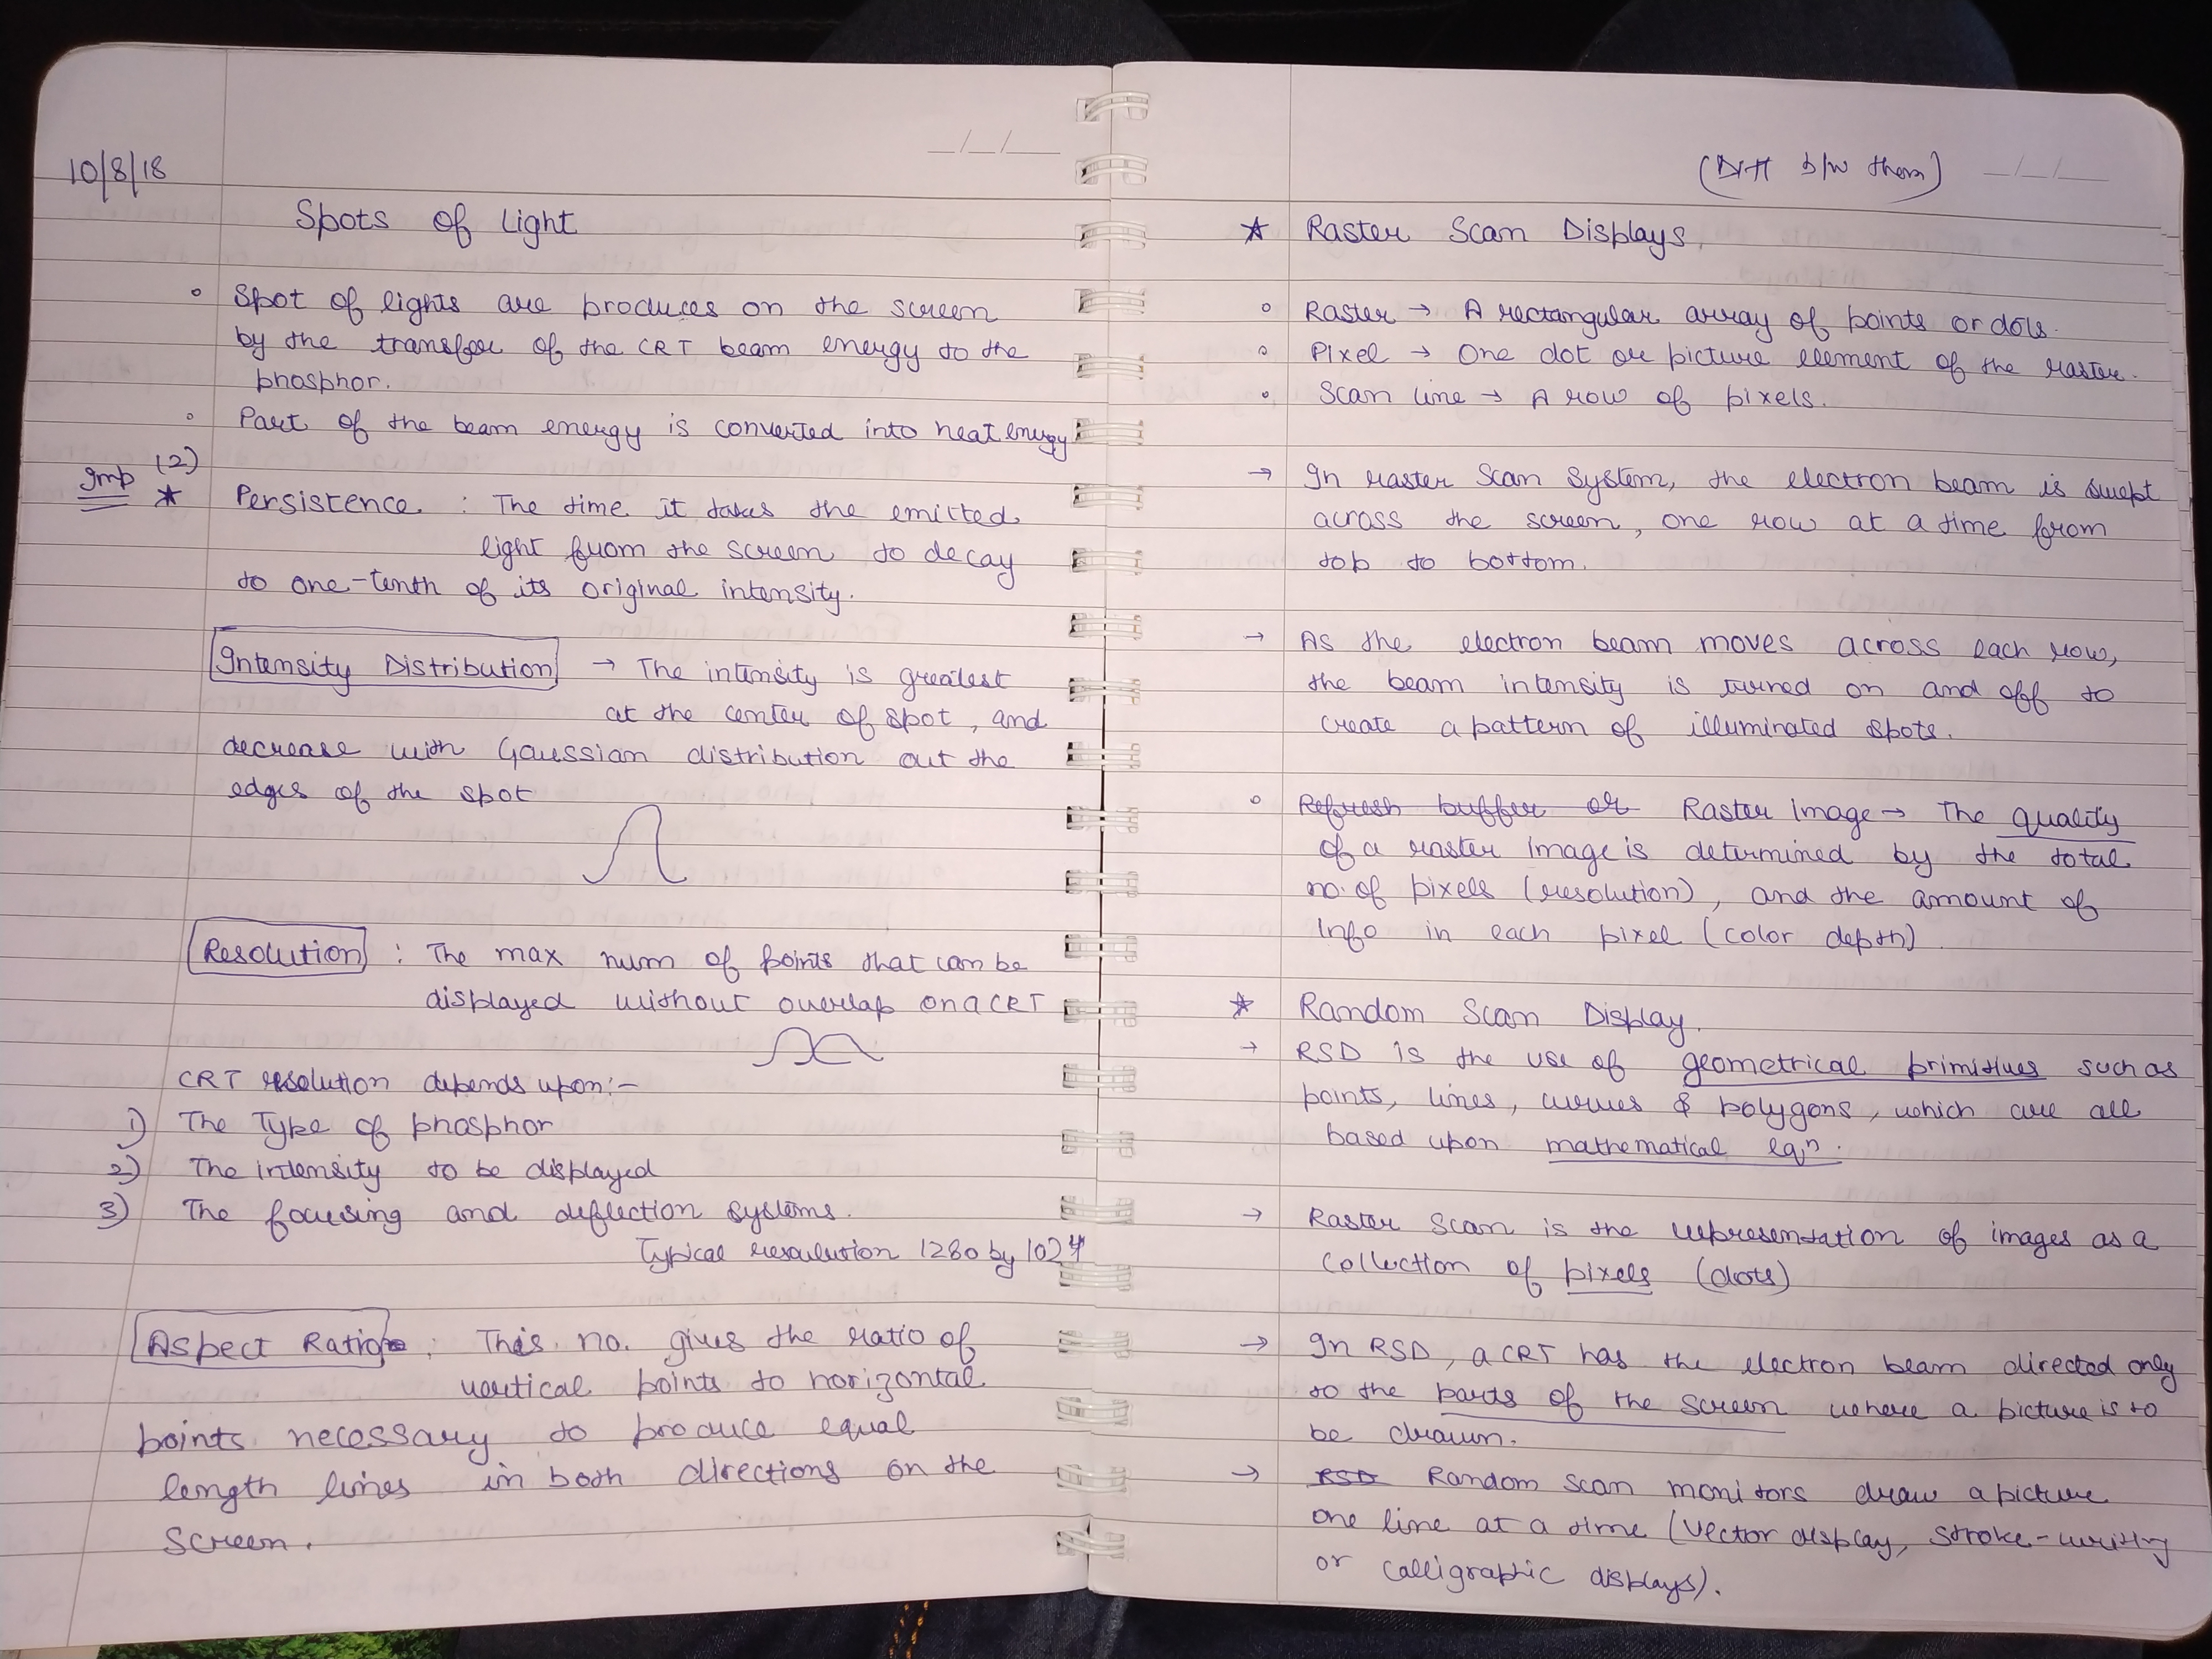 10/8/18
Spots of Light
Spot of lights are produces on the screen
by the transfer of the CRT beam energy to the
phosphor.
Part of the beam energy is converted into heat energy
Imp (2)
* Persistence : The time it takes the emitted
light from the screen to decay
to one-tenth of its original intensity.
Intensity Distribution → The intensity is greatest
at the center of spot, and
decrease with Gaussian distribution out the
edges of the spot
Resolution : The max num of points that can be
displayed without overlap on a CRT
CRT resolution depends upon:-
1) The Type of phosphor
2) The intensity to be displayed
3) The focusing and deflection systems.
Typical resolution 1280 by 1024
Aspect Ratio : This no. gives the ratio of
vertical points to horizontal
points necessary to produce equal
length lines in both directions on the
screen.
(Diff b/w them)
* Raster Scan Displays
Raster → A rectangular array of points or dots.
Pixel → One dot or picture element of the raster.
Scan line → A row of pixels.
→ In raster scan system, the electron beam is swept
across the screen, one row at a time from
top to bottom.
→ As the electron beam moves across each row,
the beam intensity is turned on and off to
create a pattern of illuminated spots.
Refresh buffer or Raster Image → The quality
of a raster image is determined by the total
no. of pixels (resolution), and the amount of
info in each pixel (color depth)
* Random Scan Display.
→ RSD is the use of geometrical primitives such as
points, lines, curves & polygons, which are all
based upon mathematical eqn.
→ Raster Scan is the representation of images as a
collection of pixels (dots)
→ In RSD, a CRT has the electron beam directed only
to the parts of the screen where a picture is to
be drawn.
→ RSD Random scan monitors draw a picture
one line at a time (vector display, stroke-writing
or calligraphic displays).